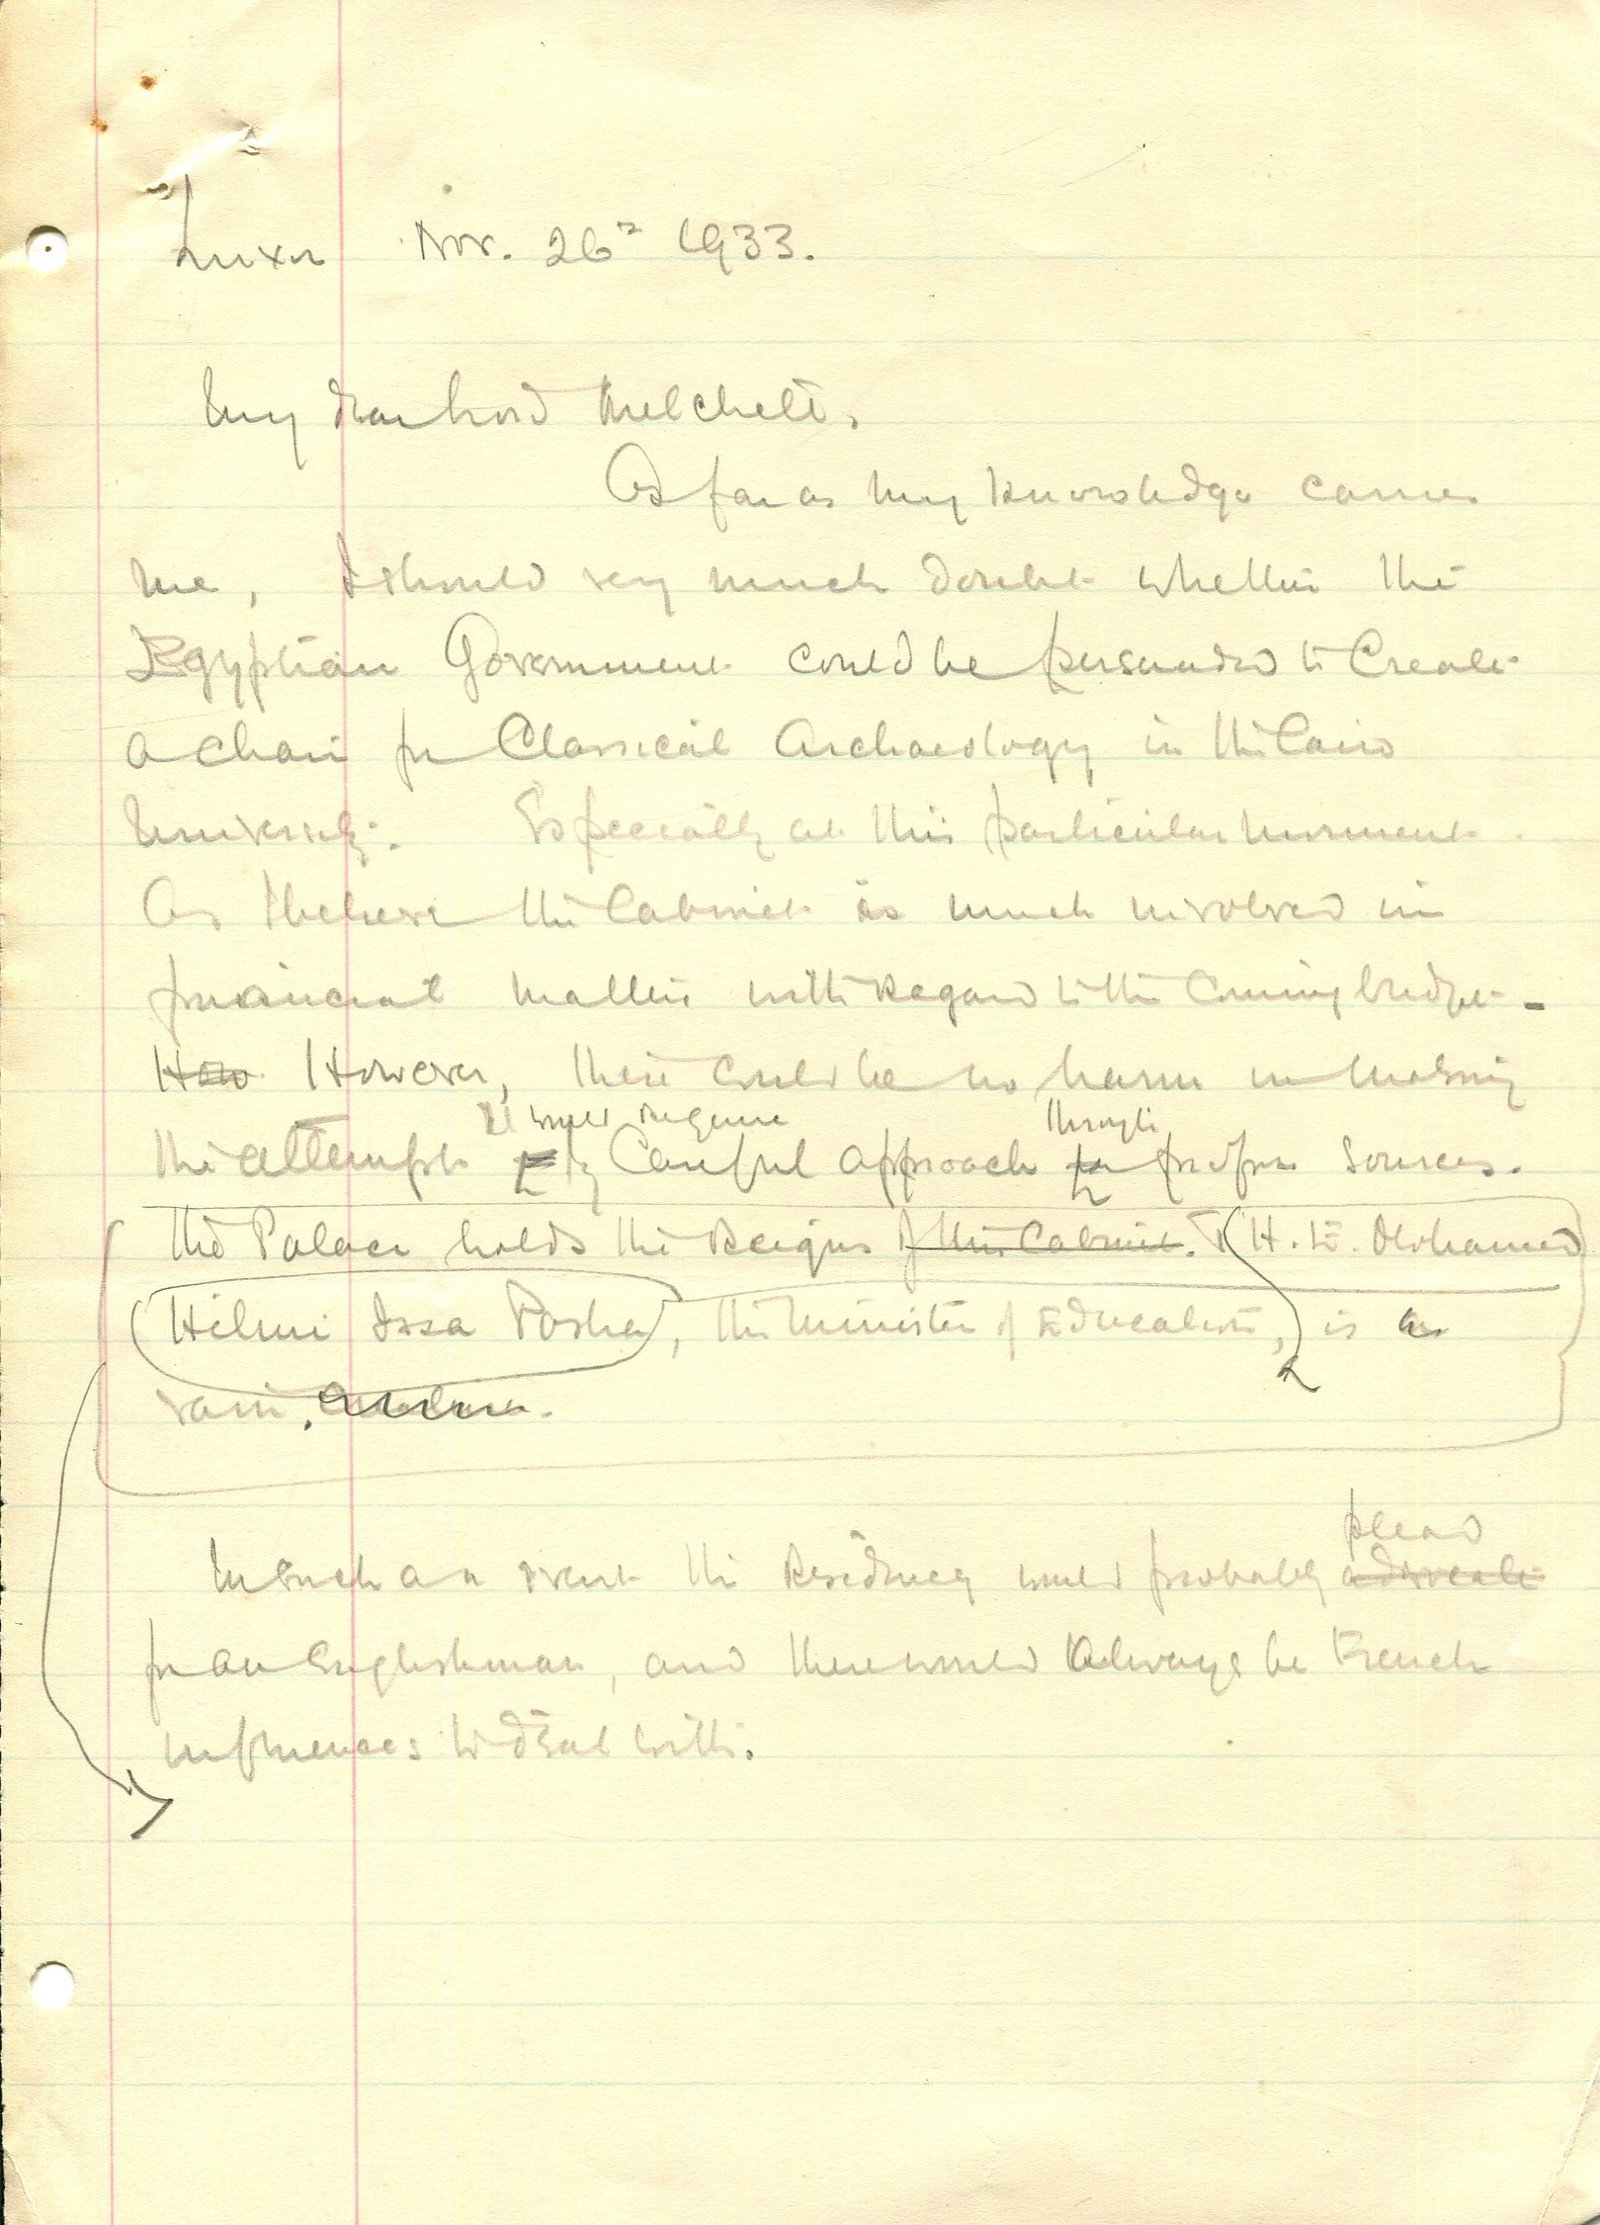 Luxor Nov. 26th 1933.
My dear Lord Melchett,
As far as my knowledge carries
me, I should very much doubt whether the
Egyptian Government could be persuaded to Create
a Chair for Classical Archaeology in the Cairo
University. Especially at this particular moment
As I believe the Cabinet is much involved in
financial matters with regard to the Coming budget -
How However, there could be no harm in making
It would require through
the attempt by Careful approach to proper sources.
The Palace holds the Reigns of the Cabinet. H. E. Mohamed
Hilmi Issa Pasha, the Minister of Education, is a
vain
plead
In such an event the Residency would probably advocate
for an Englishman, and there would always be French
influences to deal with.